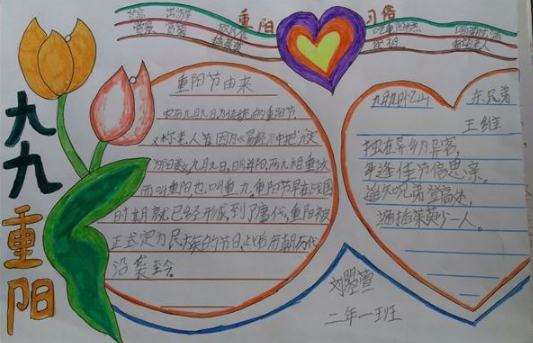 重阳 习俗
赏菊
九九重阳
重阳节由来
农历九月九日为传统的重阳节
又称老人节因为《易经》中把六定
为阴数,九月九日,明并阳,两九相重故
而叫重阳,也叫重九,重阳节早在战国
时期就已经形成,到了唐代,重阳被
正式定为民族的节日,此后历朝历代
沿袭至今
九月九日忆山 东兄弟
王维
独在异乡为异客,
每逢佳节倍思亲。
遥知兄弟登高处,
遍插茱萸少一人。
二年一班